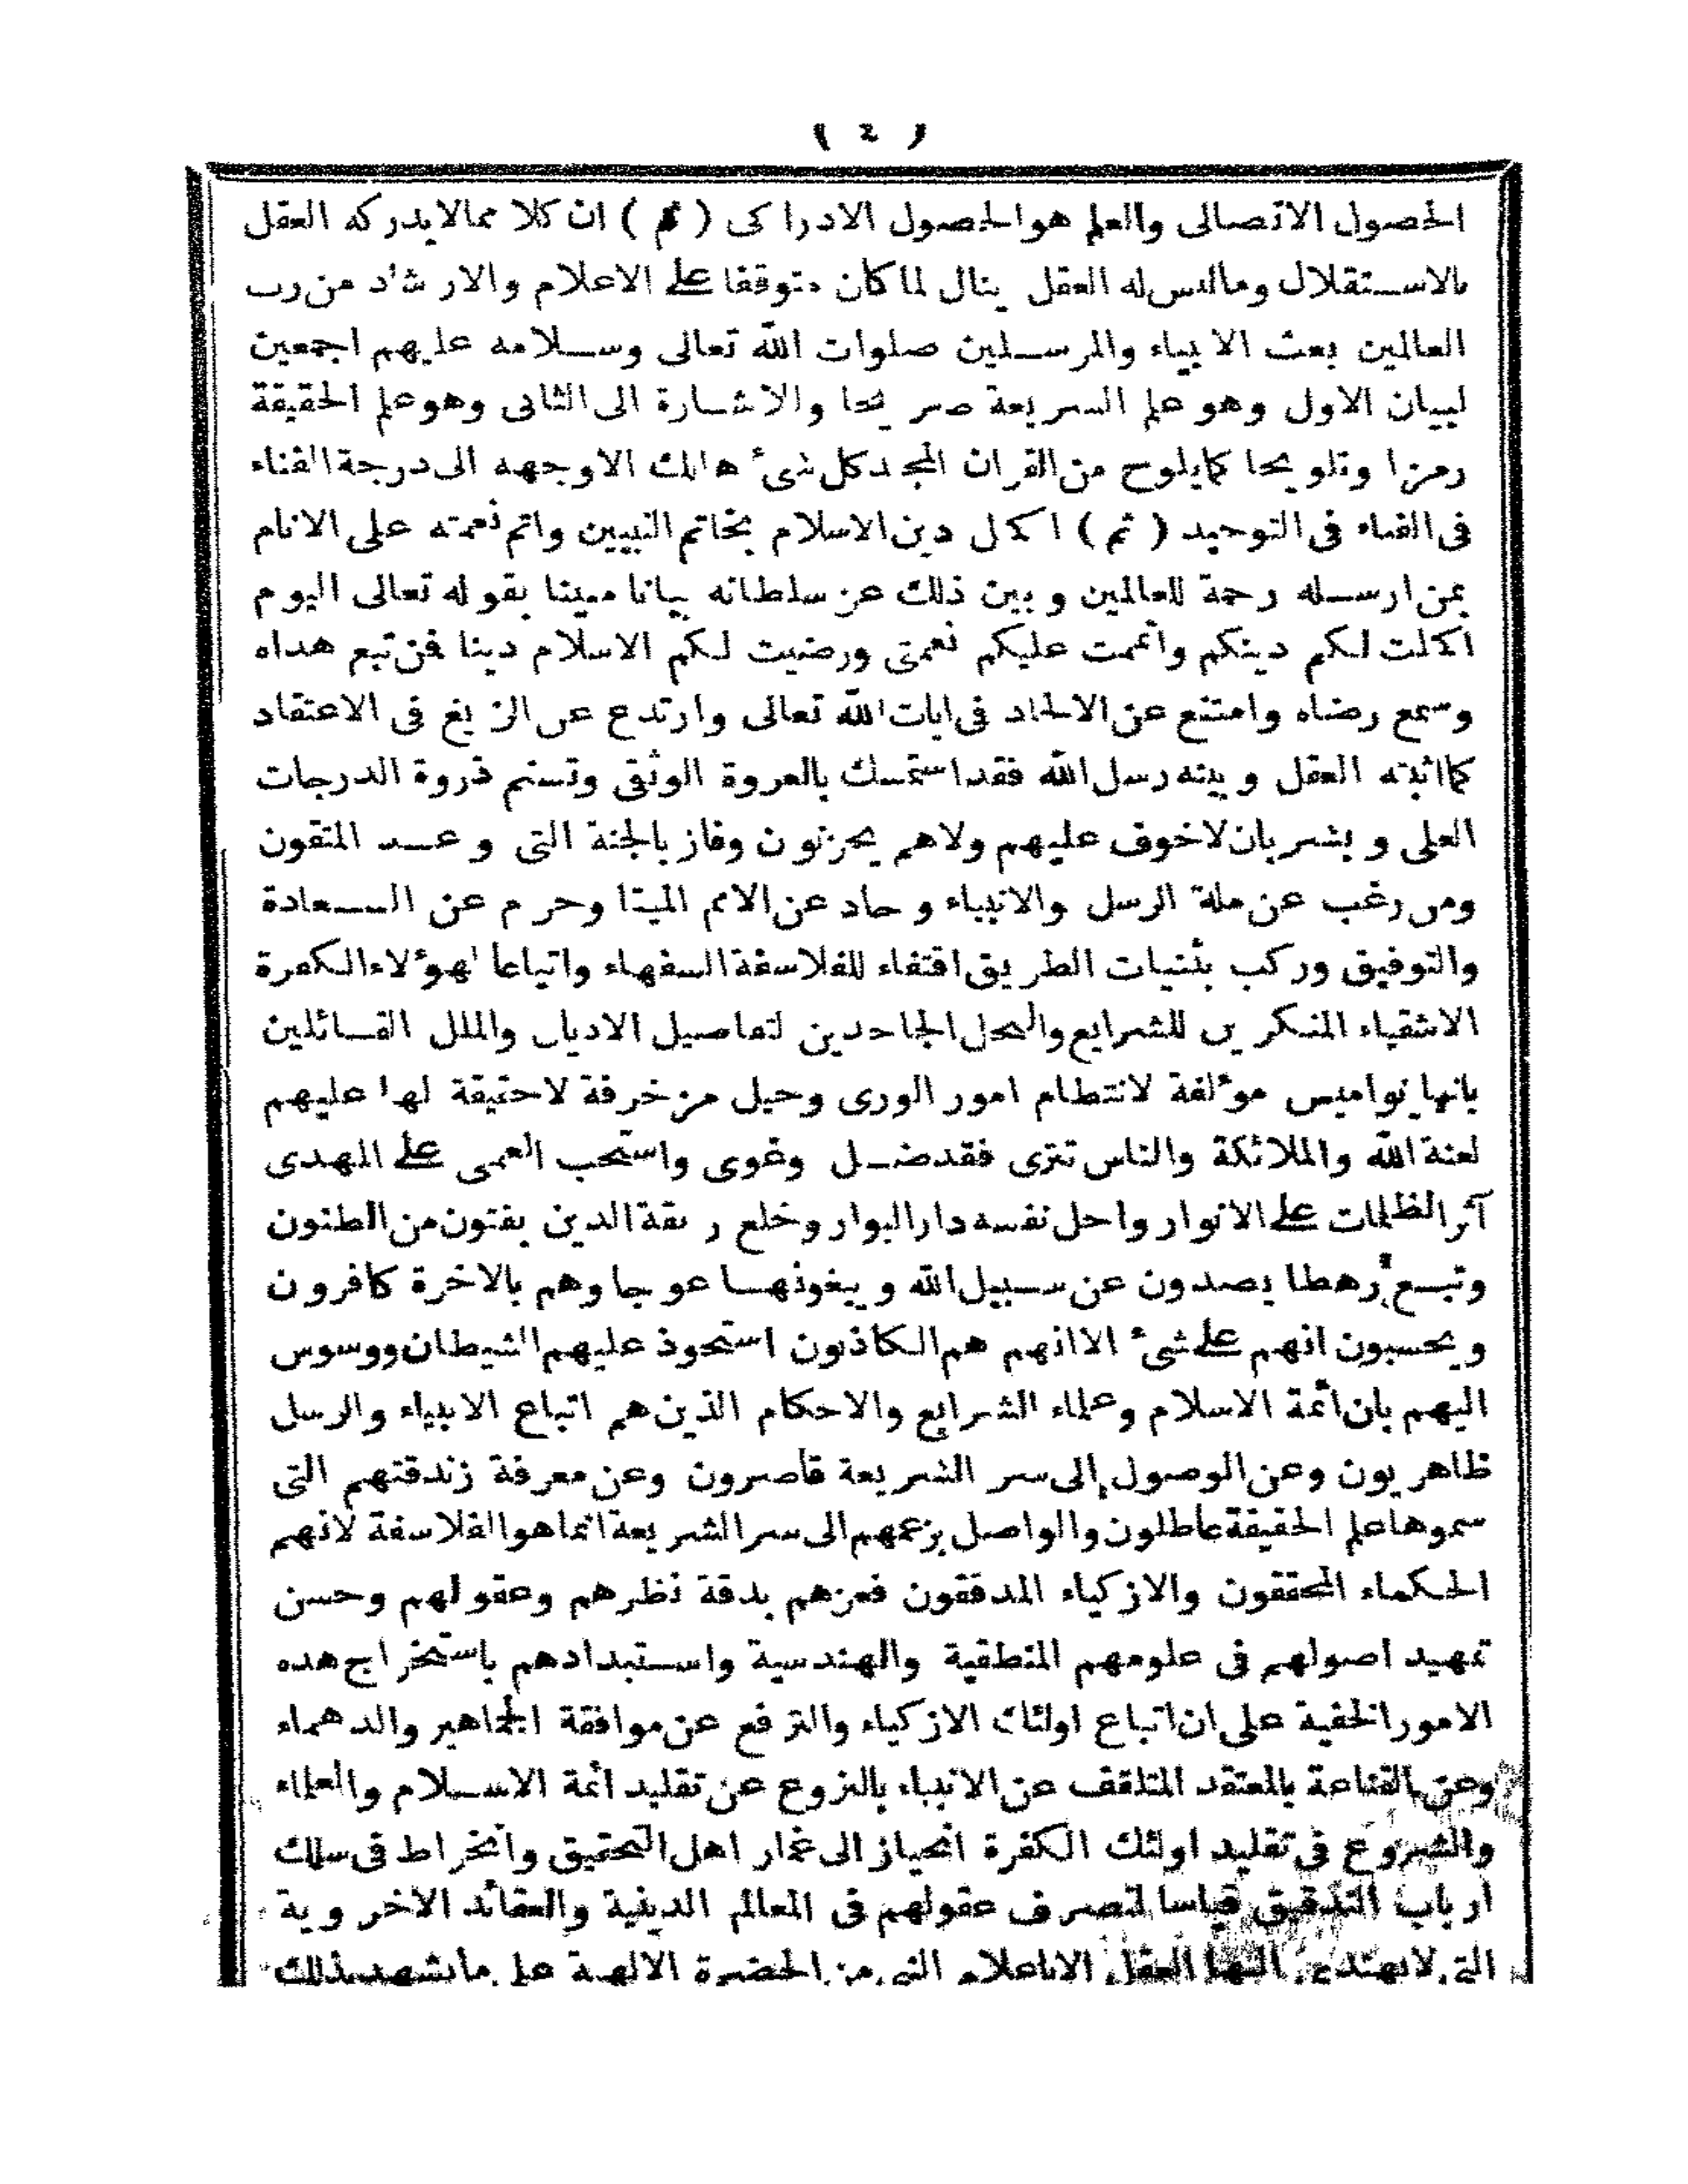 ( ٤ )
الحصول الاتصالى والعلم هو الحصول الادراكى ( ثم ) ان كلا ممالايدركه العقل
بالاستقلال وماليس له العقل ينال لما كان متوقفا على الاعلام والارشاد من رب
العالمين بعث الانبياء والمرسلين صلوات الله تعالى وسلامه عليهم اجمعين
لبيان الاول وهو علم الشريعة صريحا والاشارة الى الثانى وهو علم الحقيقة
رمزا وتلويحا كما يلوح من القران المجيد كل شئ هالك الا وجهه الى درجة الفناء
فى الفناء فى التوحيد ( ثم ) اكمل دين الاسلام بخاتم النبيين واتم نعمته على الانام
بمن ارسله رحمة للعالمين وبين ذلك عن سلطانه بيانا مبينا بقوله تعالى اليوم
اكملت لكم دينكم واتممت عليكم نعمتى ورضيت لكم الاسلام دينا فمن تبع هداه
وسمع رضاه وامتنع عن الالحاد فى ايات الله تعالى وارتدع عن الزيغ فى الاعتقاد
كما اثبته العقل وبينه رسل الله فقد استمسك بالعروة الوثقى وتسنم ذروة الدرجات
العلى وبشر بان لاخوف عليهم ولاهم يحزنون وفاز بالجنة التى وعد المتقون
ومن رغب عن ملة الرسل والانبياء وحاد عن الامم الميتا وحرم عن السعادة
والتوفيق وركب بثنيات الطريق اقتفاء للفلاسفة السفهاء واتباعا لهؤلاء الكفرة
الاشقياء المنكرين للشرايع والنحل الجاحدين لتفاصيل الاديان والملل القائلين
بانها نواميس مؤلفة لانتظام امور الورى وحيل مزخرفة لاحقيقة لها عليهم
لعنة الله والملائكة والناس تترى فقد ضل وغوى واستحب العمى على الهدى
آثر الظلمات على الانوار واحل نفسه دار البوار وخلع ربقة الدين بفتون من الظنون
وتبع رهطا يصدون عن سبيل الله ويبغونها عوجا وهم بالاخرة كافرون
ويحسبون انهم على شئ الا انهم هم الكاذبون استحوذ عليهم الشيطان ووسوس
اليهم بان ائمة الاسلام وعلماء الشرايع والاحكام الذين هم اتباع الانبياء والرسل
ظاهريون وعن الوصول إلى سر الشريعة قاصرون وعن معرفة زندقتهم التى
سموها علم الحقيقة عاطلون والواصل بزعمهم الى سر الشريعة انما هو الفلاسفة لانهم
الحكماء المحققون والازكياء المدققون فعزهم بدقة نظرهم وعقولهم وحسن
تمهيد اصولهم فى علومهم المنطقية والهندسية واستبدادهم باستخراج هذه
الامور الخفية على ان اتباع اولئك الازكياء والترفع عن موافقة الجماهير والدهماء
وعن القناعة بالمعتقد المتلقف عن الانبياء بالنزوع عن تقليد ائمة الاسلام والعلماء
والشروع فى تقليد اولئك الكفرة انحياز الى غمار اهل التحقيق وانخراط فى سلك
ارباب التدقيق قياسا لتصرف عقولهم فى المعالم الدينية والعقائد الاخروية
التى لايهتدى اليها العقل الا باعلام النبى من الحضرة الالهية على مايشهد بذلك